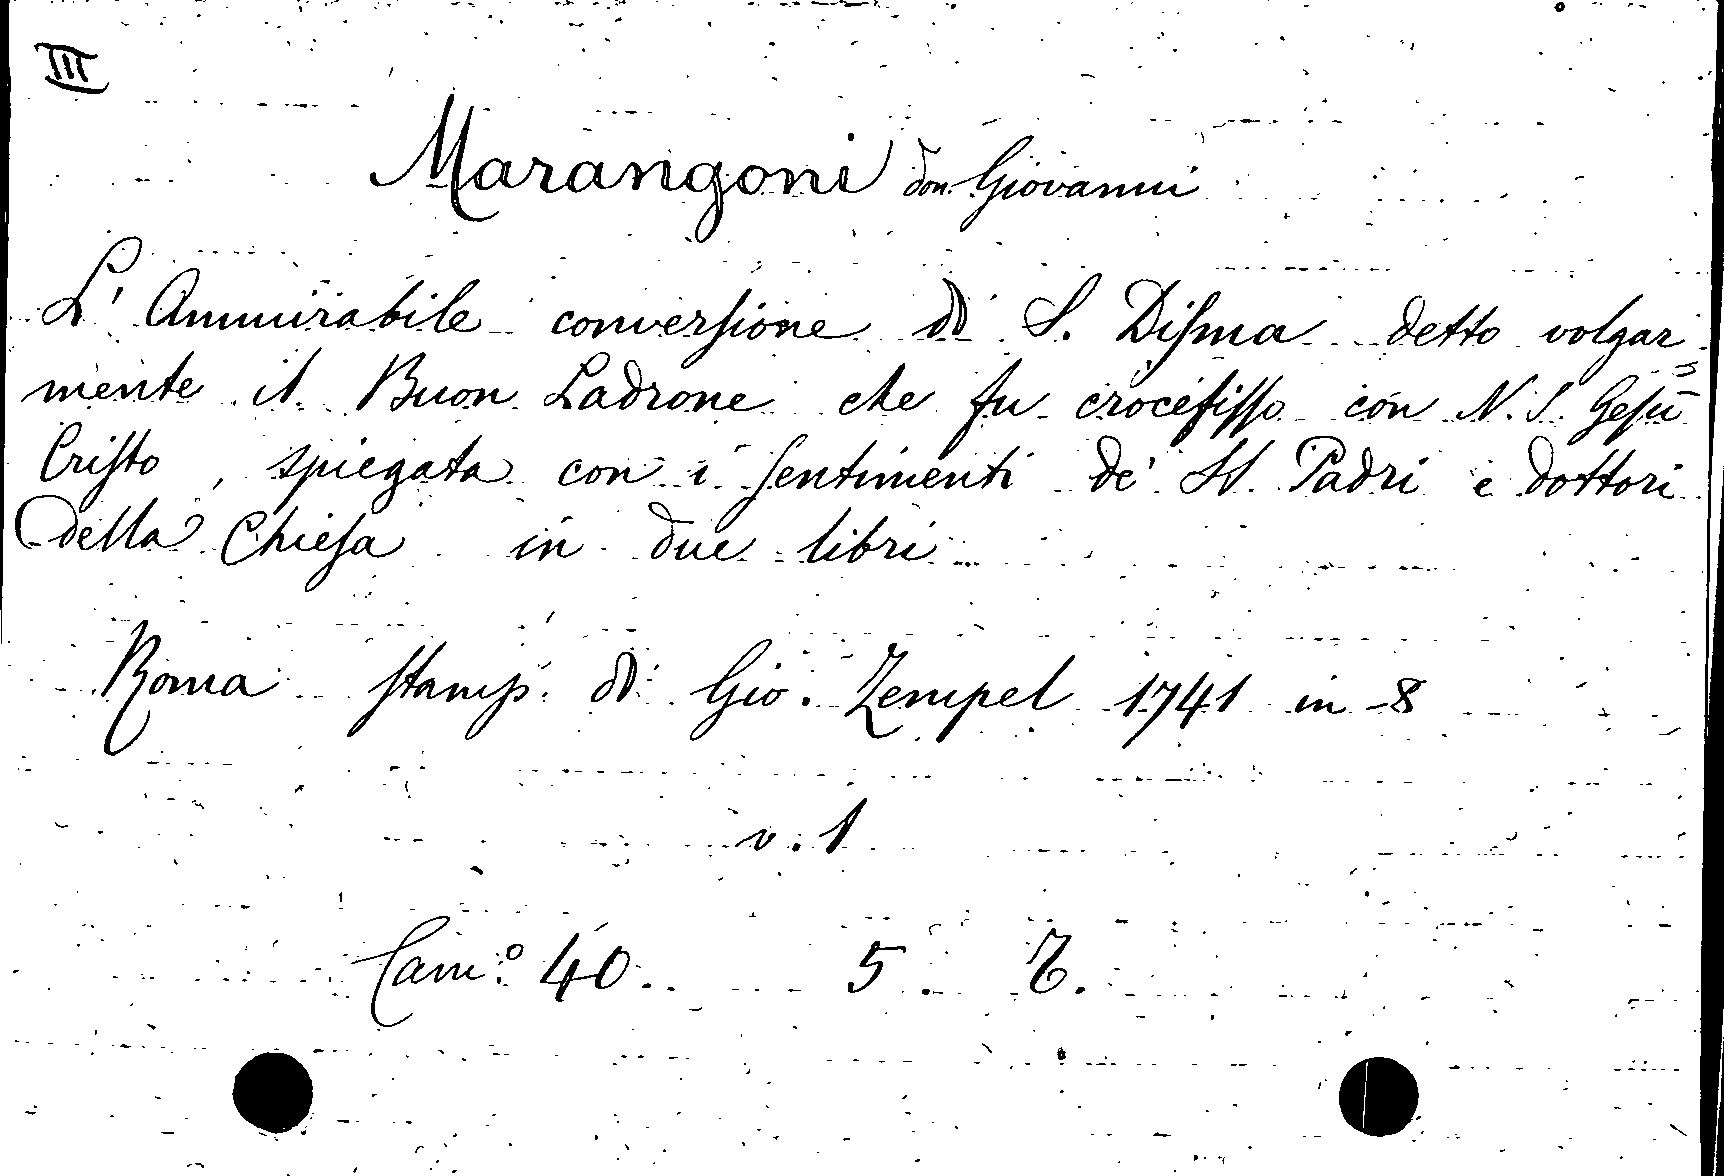 III
Marangoni don Giovanni
L' Ammirabile conversione di S. Disma detto volgar=
mente il Buon Ladrone che fu crocefisso con N. S. Gesù
Cristo, spiegata con i sentimenti de' SS. Padri e dottori
della Chiesa in due libri
Roma stamp. di Gio. Zempel 1741 in 8
v. 1
Cam.º 40. 5.